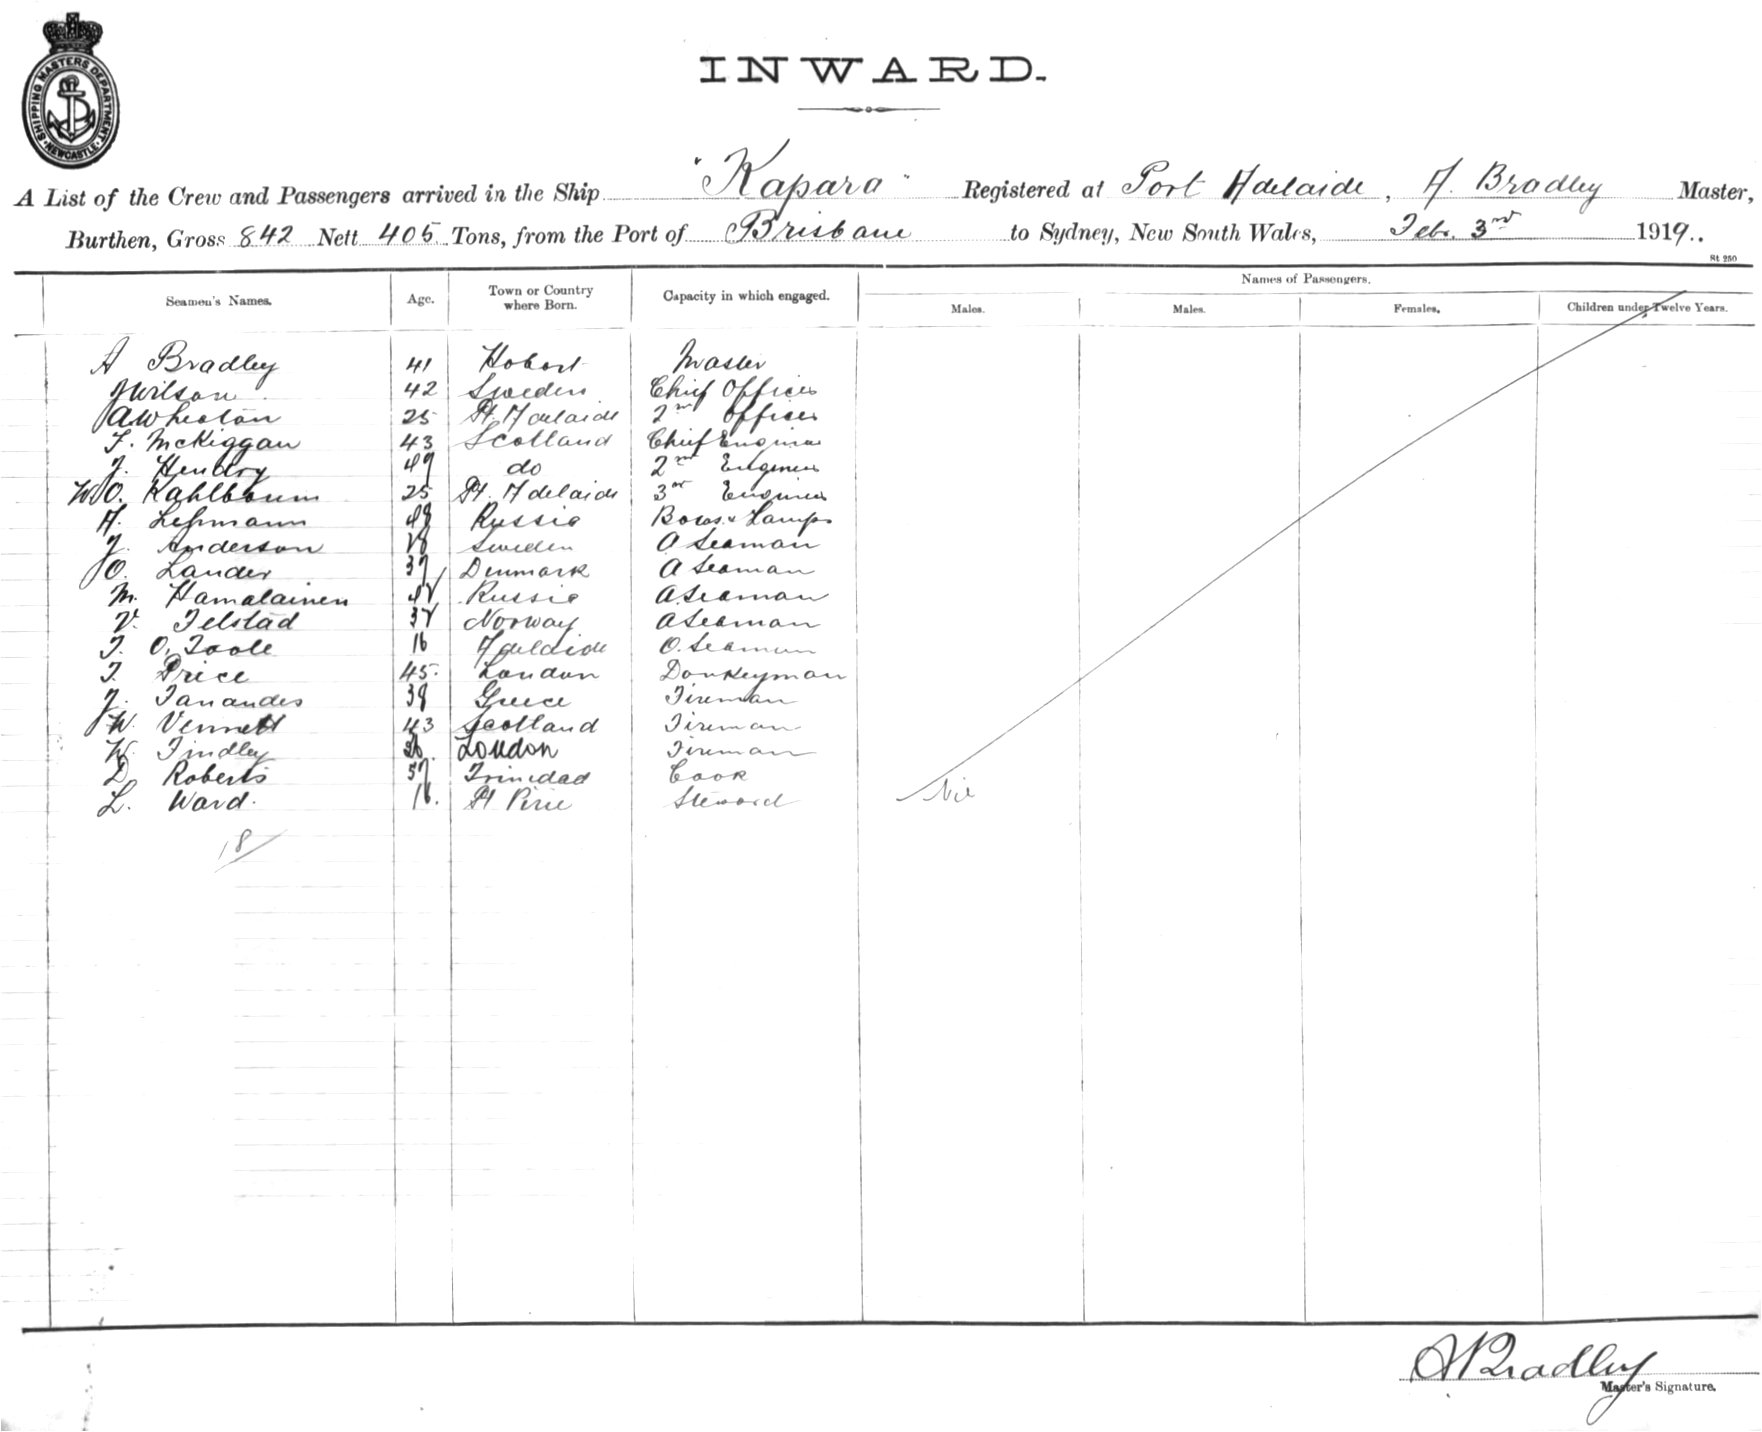 SHIPPING MASTERS DEPARTMENT
NEWCASTLE
INWARD.
A List of the Crew and Passengers arrived in the Ship "Kapara" Registered at Port Adelaide, A. Bradley Master,
Burthen, Gross 842 Nett 405 Tons, from the Port of Brisbane to Sydney, New South Wales, Feb. 3rd 1919..
St 250
Names of Passengers.
Seamen's Names. Age. Town or Country where Born. Capacity in which engaged. Males. Males. Females. Children under Twelve Years.
A Bradley 41 Hobart Master
J Wilson 42 Sweden Chief Officer
A Wheaton 25 Pt. Adelaide 2nd Officer
F. McKiggan 43 Scotland Chief Engineer
J. Hendry 49 do 2nd Engineer
W O. Kahlbaum 25 Pt. Adelaide 3rd Engineer
A. Lehmann 48 Russia Bosn. & Lamps
J. Anderson Sweden A Seaman
O. Lander 37 Denmark A Seaman
M. Hamalainen Russia A. Seaman
V. Telstad Norway A Seaman
T. O. Toole 16 Adelaide O. Seaman
T. Price 45. London Donkeyman
J. Tanandes 38 Greece Fireman
W. Vennell 43 Scotland Fireman
W. Findley London Fireman
D. Roberts 57 Trinidad Cook
L. Ward. 16. Pt Pirie Steward Nil
18
A Bradley
Master's Signature.